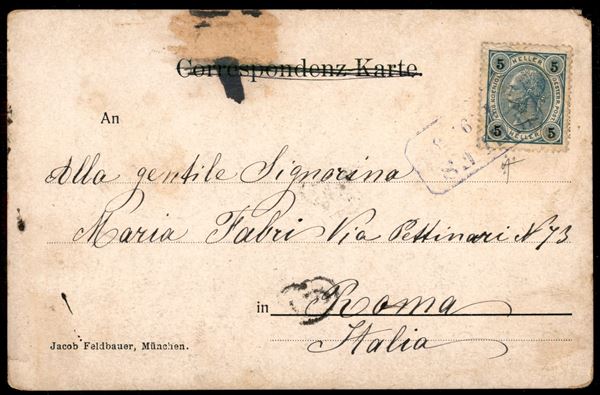 Correspondenz-Karte.
5 HELLER 5
5 HELLER 5
An
Alla gentile Signorina
Maria Fabri Via Pettinari N 73
in Roma
Italia
Jacob Feldbauer, München.